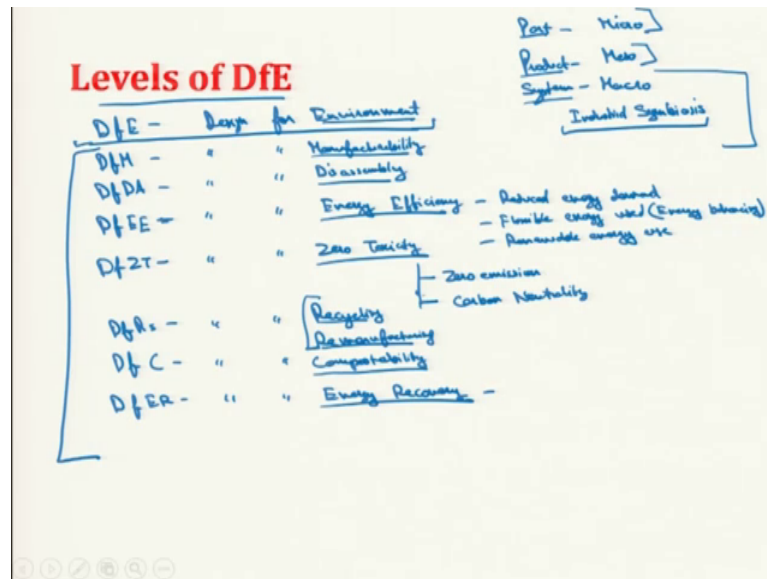 Part - Micro
Product - Meso
System - Macro
Industrial Symbiosis
Levels of DfE
DfE - Design for Environment
DfM - " " Manufacturability
DfDA - " " Disassembly
DfEE - " " Energy Efficiency - Reduced energy demand
- Flexible energy used (Energy balancing)
- Renewable energy use
DfZT - " " Zero Toxicity
- Zero emission
- Carbon Neutrality
DfRs - " " Recycling
Remanufacturing
DfC - " " Compostability
DfER - " " Energy Recovery -